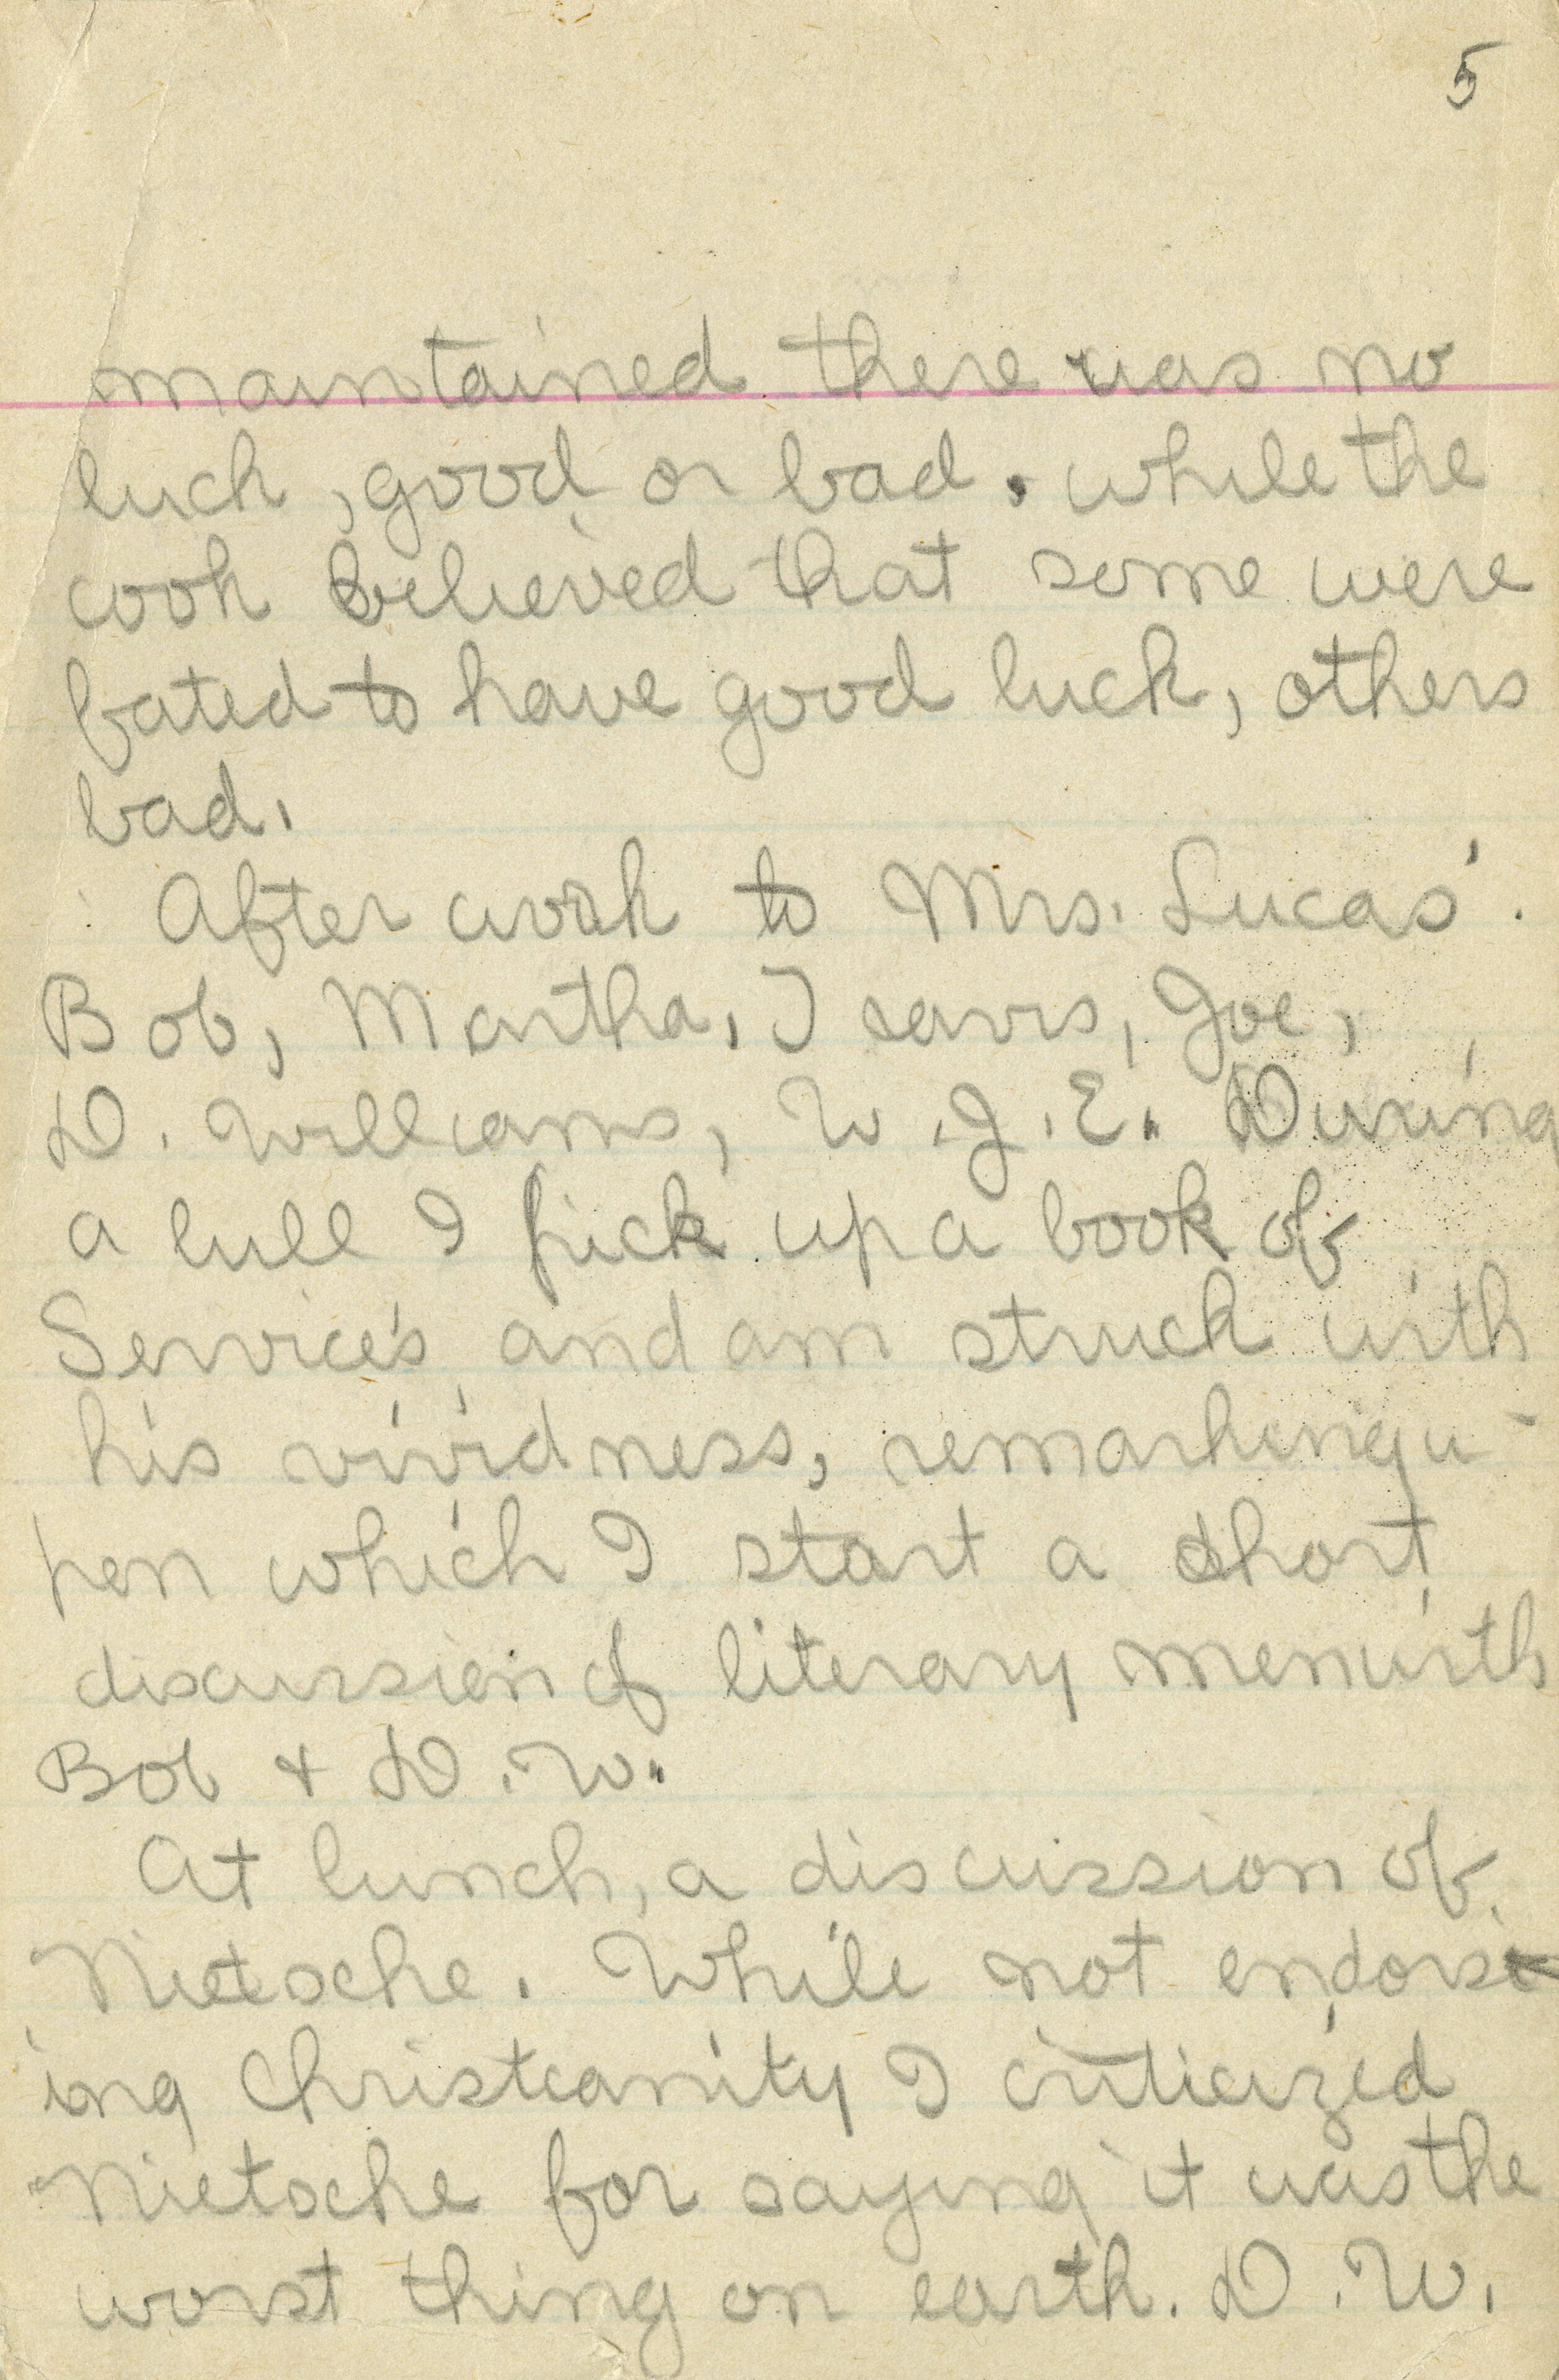 5
maintained there was no
luck, good or bad. while the
cook believed that some were
fated to have good luck, others
bad.
After work to Mrs. Lucas'.
Bob, Martha, I savrs, Joe,
D. Williams, W.J.E. During
a lull I pick up a book of
Service's and am struck with
his vividness, remarking u-
pon which I start a short
discussion of literary men with
Bob & D.W.
At lunch, a discussion of
Nietsche. While not endors
ing Christianity I criticized
Nietsche for saying it was the
worst thing on earth. D.W.